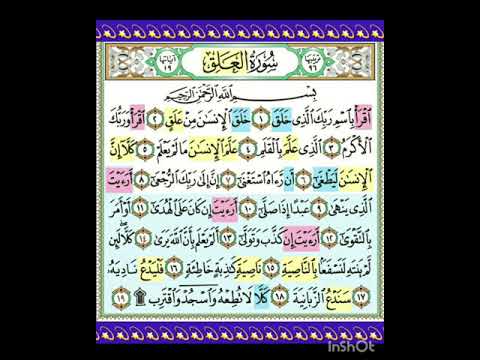 آياتها ١٩ سُورَةُ الْعَلَقِ ترتيبها ٩٦
بِسْمِ اللَّهِ الرَّحْمَٰنِ الرَّحِيمِ
اقْرَأْ بِاسْمِ رَبِّكَ الَّذِي خَلَقَ ١ خَلَقَ الْإِنسَانَ مِنْ عَلَقٍ ٢ اقْرَأْ وَرَبُّكَ
الْأَكْرَمُ ٣ الَّذِي عَلَّمَ بِالْقَلَمِ ٤ عَلَّمَ الْإِنسَانَ مَا لَمْ يَعْلَمْ ٥ كَلَّا إِنَّ
الْإِنسَانَ لَيَطْغَىٰ ٦ أَن رَّءَاهُ اسْتَغْنَىٰ ٧ إِنَّ إِلَىٰ رَبِّكَ الرُّجْعَىٰ ٨ أَرَءَيْتَ
الَّذِي يَنْهَىٰ ٩ عَبْدًا إِذَا صَلَّىٰ ١٠ أَرَءَيْتَ إِن كَانَ عَلَى الْهُدَىٰ ١١ أَوْ أَمَرَ
بِالتَّقْوَىٰ ١٢ أَرَءَيْتَ إِن كَذَّبَ وَتَوَلَّىٰ ١٣ أَلَمْ يَعْلَم بِأَنَّ اللَّهَ يَرَىٰ ١٤ كَلَّا لَئِن
لَّمْ يَنتَهِ لَنَسْفَعًا بِالنَّاصِيَةِ ١٥ نَاصِيَةٍ كَاذِبَةٍ خَاطِئَةٍ ١٦ فَلْيَدْعُ نَادِيَهُ
١٧ سَنَدْعُ الزَّبَانِيَةَ ١٨ كَلَّا لَا تُطِعْهُ وَاسْجُدْ وَاقْتَرِب ۩ ١٩
InShOt